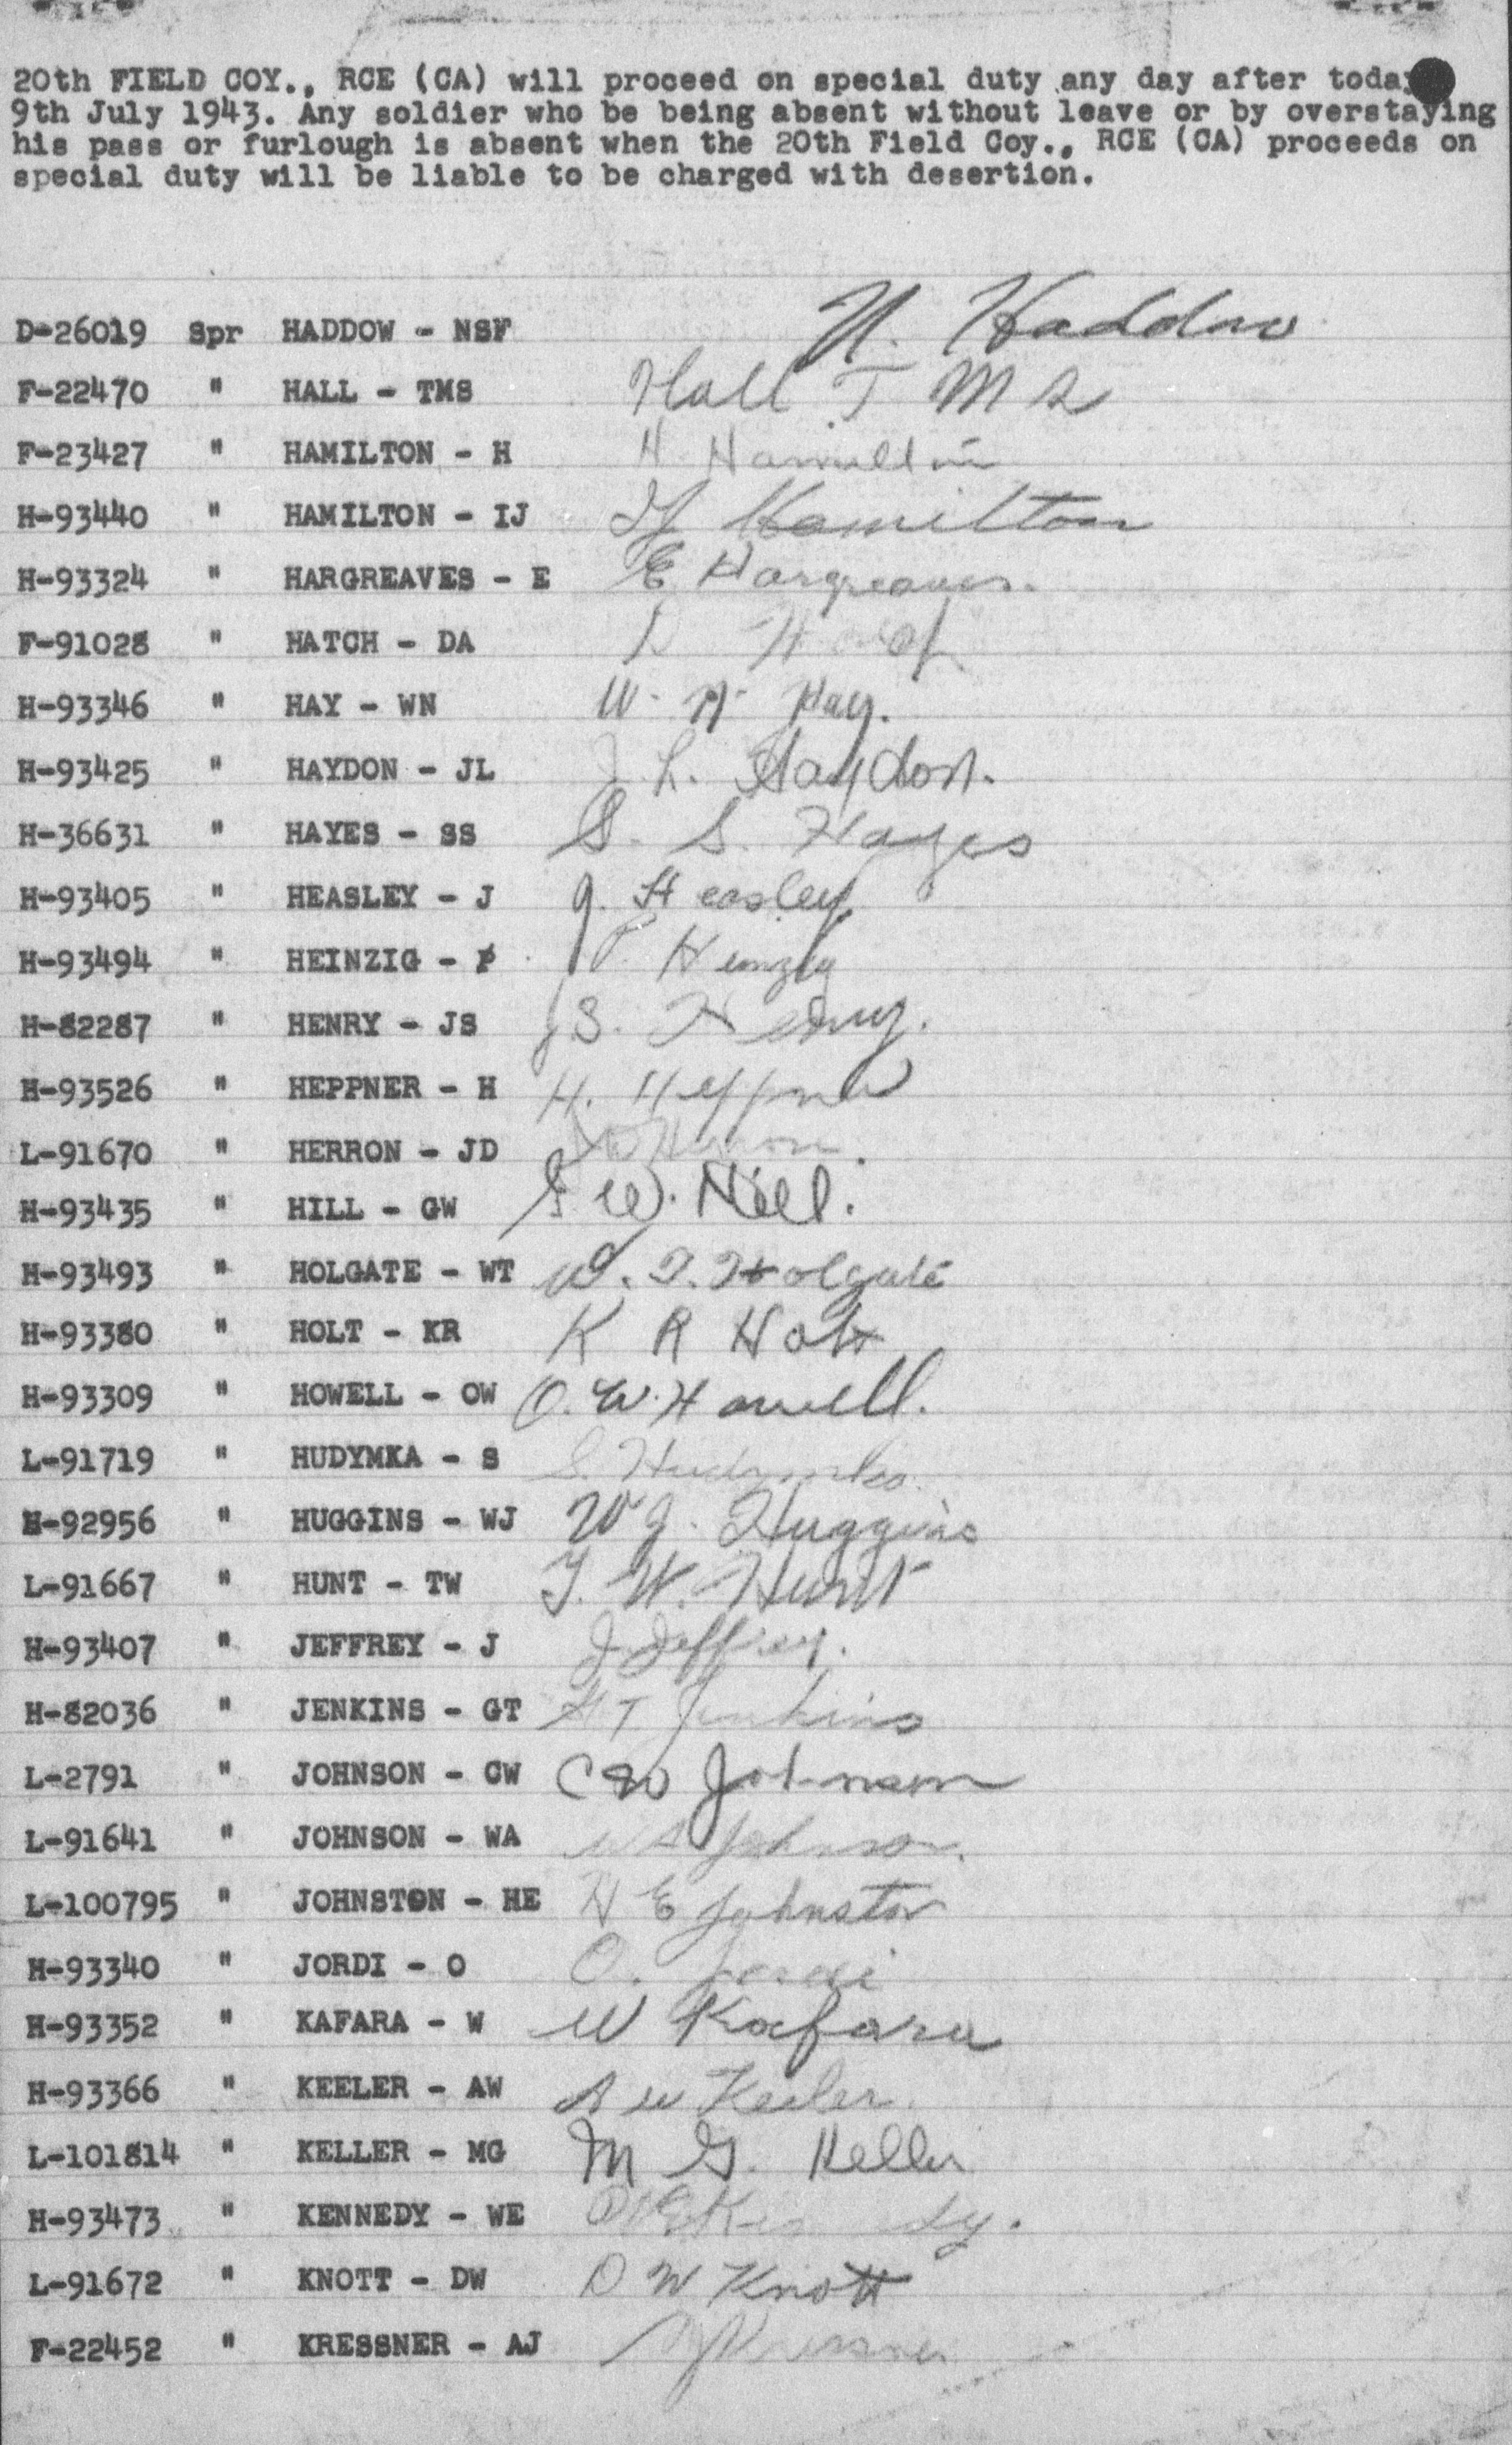 20th FIELD COY., RCE (CA) will proceed on special duty any day after today
9th July 1943. Any soldier who be being absent without leave or by overstaying
his pass or furlough is absent when the 20th Field Coy., RCE (CA) proceeds on
special duty will be liable to be charged with desertion.
D-26019 Spr HADDOW - NSF N. Haddow
F-22470 " HALL - TMS Hall T M S
F-23427 " HAMILTON - H H. Hamilton
H-93440 " HAMILTON - IJ IJ Hamilton
H-93324 " HARGREAVES - E E Hargreaves.
F-91028 " HATCH - DA D
H-93346 " HAY - WN W. N. Hay.
H-93425 " HAYDON - JL J. L. Haydon.
H-36631 " HAYES - SS S. S. Hayes
H-93405 " HEASLEY - J J. Heasley
H-93494 " HEINZIG - P P. Heinzig
H-82287 " HENRY - JS JS. Henry.
H-93526 " HEPPNER - H H. Heppner
L-91670 " HERRON - JD JD Herron.
H-93435 " HILL - GW G. W. Hill.
H-93493 " HOLGATE - WT W. T. Holgate
H-93380 " HOLT - KR K R Holt
H-93309 " HOWELL - OW O. W. Howell.
L-91719 " HUDYMKA - S S. Hudymka.
H-92956 " HUGGINS - WJ W J. Huggins
L-91667 " HUNT - TW T. W. Hunt
H-93407 " JEFFREY - J J. Jeffrey.
H-82036 " JENKINS - GT G T Jenkins
L-2791 " JOHNSON - CW C W Johnson
L-91641 " JOHNSON - WA W A Johnson.
L-100795 " JOHNSTON - HE H E Johnston
H-93340 " JORDI - O O. Jordi
H-93352 " KAFARA - W W Kafara
H-93366 " KEELER - AW A W Keeler.
L-101814 " KELLER - MG M G. Keller
H-93473 " KENNEDY - WE WE Kennedy.
L-91672 " KNOTT - DW D W Knott
F-22452 " KRESSNER - AJ AJ Kressner